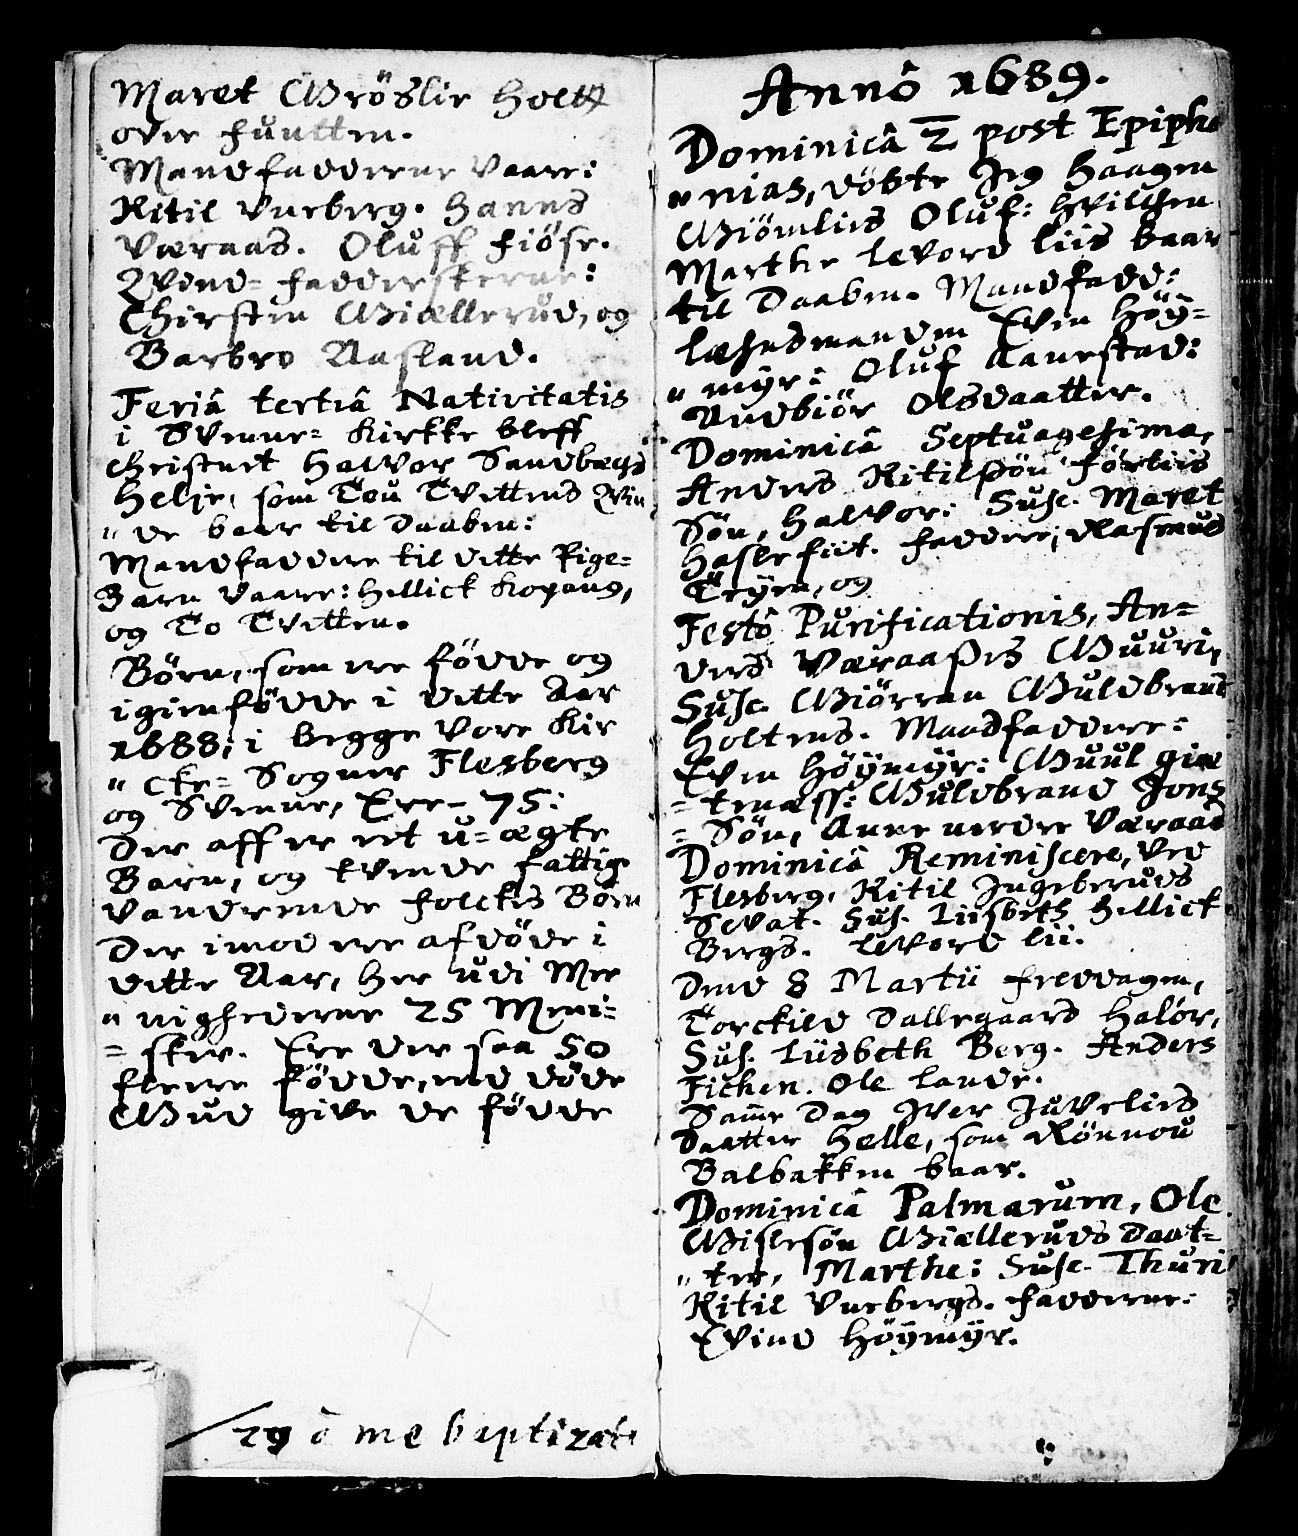 Maret Grøslie Holtt
over Funtten.
Mandfadderne vaare:
Kitil Vueberg. Hanns
Væraas. Oluff Fiöse.
Qvind= fadderskerne:
Chirstin Giællerud, og
Barbro Aasland.
Feriâ tertiâ Nativitatis
i Svenne= Kirkke bleff
Christnet Halvor Sandbægs
Helje, som Tou Tvettens Qvin
" de baar til Daaben:
Mandfaddere til dette Pige=
Barn vaare: Hellick Kopang,
og To Tvetten.
Börn, som ere födde og
igienfödde i dette Aar
1688, i begge vore Kir
" cke= Sogner Flesberg
og Svenne, Ere- 75:
Der aff er eet u=ægte
Barn, og tvende fattige
vandrende Folckes Börn
Der imod ere afdöde i
dette Aar, her udi Me
" nighederne 25 Meni=
= sker. Ere der saa 50
flerre födde, end döde
Gud give de födde
29 à me baptizati
Annô 1689.
Dominicâ 2 post Epipha
" nias, döbte Jeg Haagen
Giömlies Oluf:
Marthe Levord Liis baar
til Daaben. Mandfadd:
Læhnsmanden Even Höÿ=
" mÿr: Oluf Aanestad:
Audbiör Olsdaatter.
Dominicâ Septuagesima,
Anders Kitilsön Förliis
Sön, Halvor: Susc. Maret
Haslefiit. Faddere, Rasmus
Trÿen, og
Festô Purificationis, An=
ders Væraases Guuri,
Susc. Giörran Guldbrand
Holtens. Maadfaddere:
Even Höÿmÿr: Guul Giæ
= tenæss: Guldbrand Jons
= Sön, Aure nerdre Væraas
Dominicâ Reminiscere, ved
Flesberg, Kitil Jngeberuds
Sevat. Sus. Liisbeth Hellick
Bergs. Levord Lii.
Dend 8 Martii Freddagen,
Torckild Dallegaard Halör,
Sus. Liisbeth Berg. Anders
Fichen. Ole Lande.
Samme Dag Iver Juvelies
Daatter Helle, som Rönnou
Balbakken baar.
Dominicâ Palmarum, Ole
Gislesön Giælleruds Daat=
" ter, Marthe: Susc. Thuri
Kitil Vuebergs. Fadderne:
Evind Höÿmÿr.